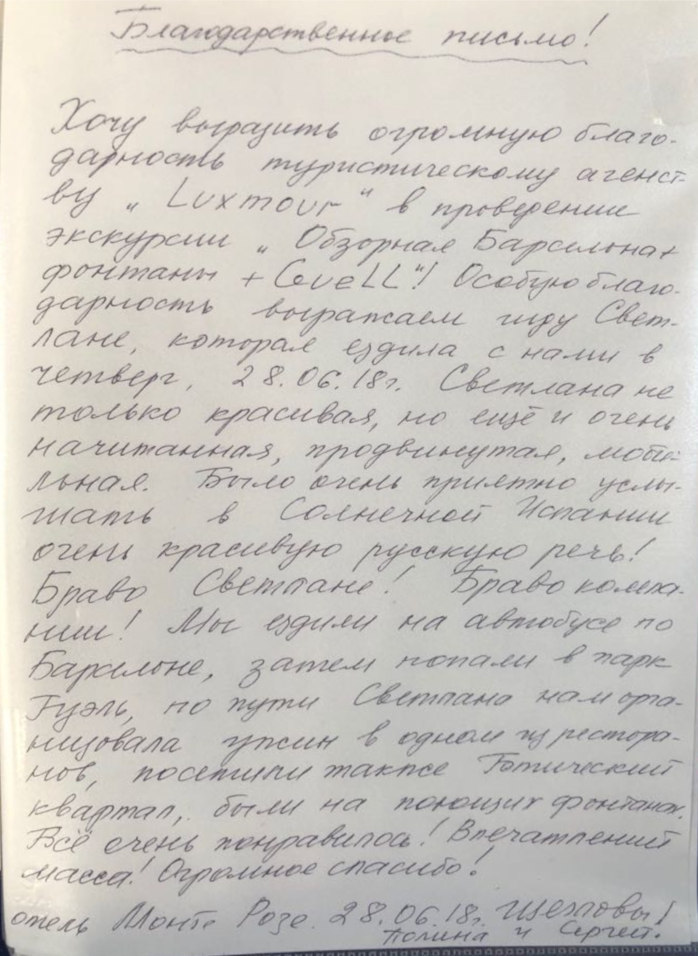 Благодарственное письмо!
Хочу выразить огромную благо-
дарность туристическому агенст-
ву „Luxmour“ в проведении
экскурсии „Обзорная Барселона+
фонтаны + GueLL“! Особую благо-
дарность выражаем гиду Свет-
лане, которая ездила с нами в
четверг, 28.06.18г. Светлана не
только красивая, но ещё и очень
начитанная, продвинутая, моби-
льная. Было очень приятно услы-
шать в Солнечной Испании
очень красивую русскую речь!
Браво Светлане! Браво компа-
нии! Мы ездили на автобусе по
Барселоне, затем попали в парк
Гуэль, по пути Светлана нам орга-
низовала ужин в одном из рестора-
нов, посетили также Готический
квартал, были на поющих фонтанах.
Всё очень понравилось! Впечатлений
масса! Огромное спасибо!
отель Монте Розе. 28.06.18г. Щегловы!
Полина и Сергей.